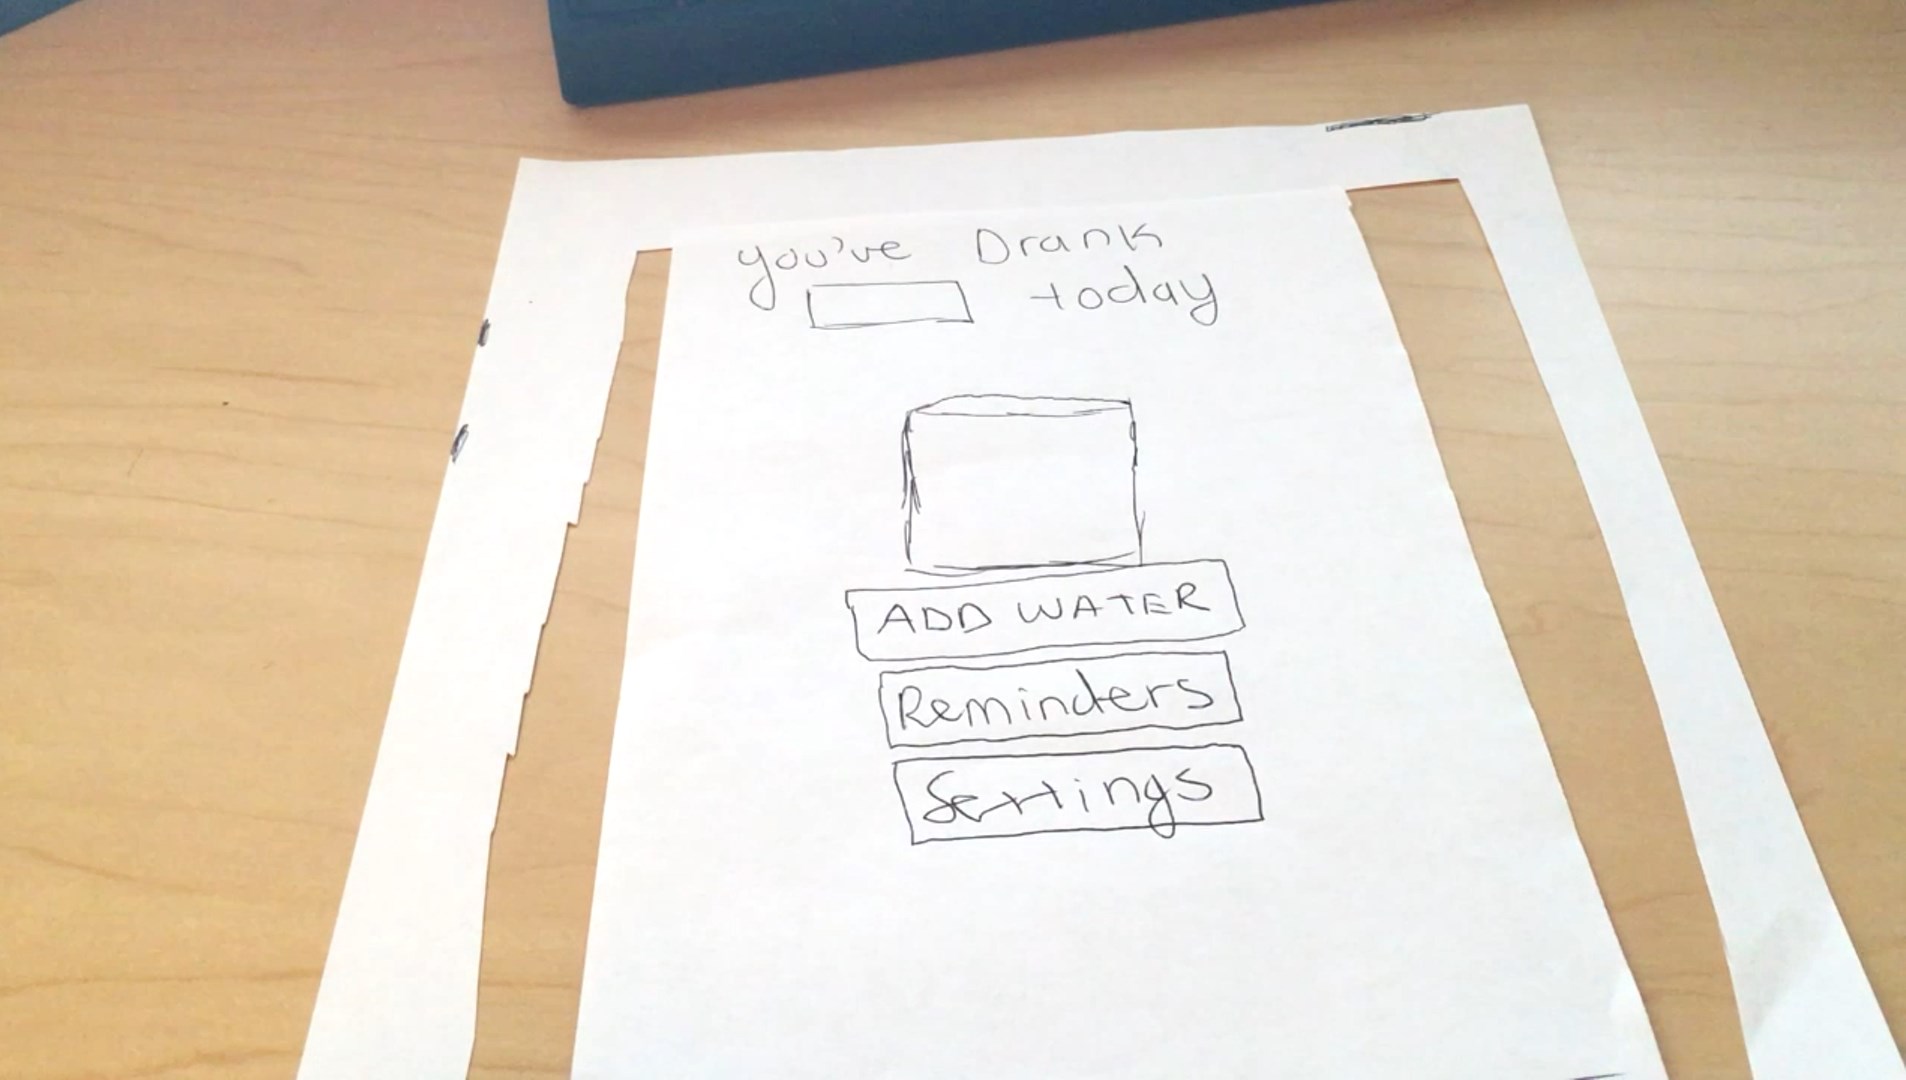 you've Drank
today
ADD WATER
Reminders
Settings